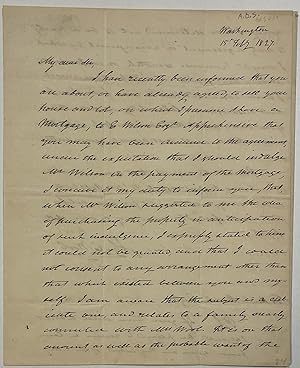 A.D.S.
Washington
15 Feby. 1827.
My dear Sir,
I have recently been informed that you
are about, or have already agreed, to sell your
house and lot, on which I presume I have a
Mortgage, to E Wilson Esqr. Apprehensive that
you may have been induced to the agreement
under the expectation that I should indulge
Mr Wilson in the payment of the Mortgage,
I conceive it my duty to inform you, that
when Mr Wilson suggested to me the idea
of purchasing the property in anticipation
of such indulgence, I expressly stated to him
it could not be granted and that I could
not consent to any arrangement other than
that which existed between you and my-
self. I am aware that the subject is a del-
icate one, and relates to a family nearly
connected with Mrs Wool. It is on that
account, as well as the probable want of the